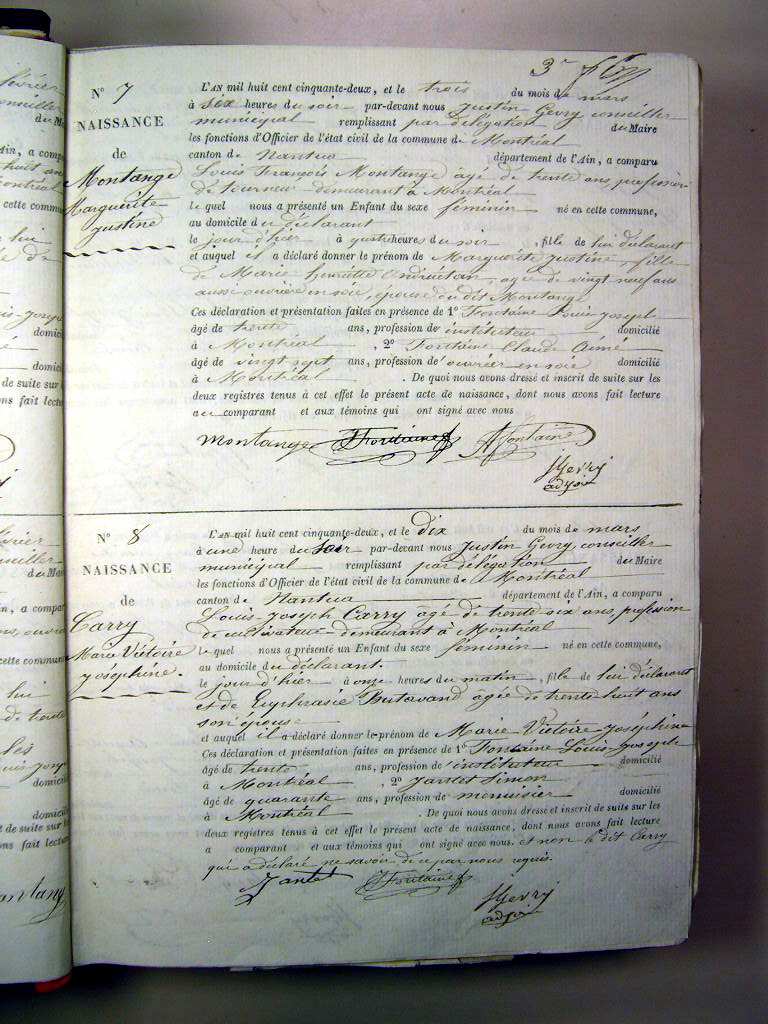 3e
N° 7
NAISSANCE
de
Montange
Marguérite
justine
L'AN mil huit cent cinquante-deux, et le trois du mois de mars
à six heures du soir par-devant nous Justin Gevry conseiller
municipal remplissant par délégation du Maire
les fonctions d'Officier de l'état civil de la commune de Montréal
canton de Nantua département de l'Ain, a comparu
Louis François Montange âgé de trente ans, profession
de tourneur demeurant à Montréal
le quel nous a présenté un Enfant du sexe féminin né en cette commune,
au domicile du déclarant
le jour d'hier à quatre heures du soir, fille de lui déclarant
et auquel il a déclaré donner le prénom de Marguérite justine, fille
de Marie henriette agée de vingt neuf ans
aussi ouvrière en soie, épouse du dit Montange
Ces déclaration et présentation faites en présence de 1° Fontaine Louis joseph
âgé de trente ans, profession de instituteur domicilié
à Montréal, 2° Fontaine Claude Aimé
âgé de vingt sept ans, profession d'ouvrier en soie domicilié
à Montréal. De quoi nous avons dressé et inscrit de suite sur les
deux registres tenus à cet effet le présent acte de naissance, dont nous avons fait lecture
au comparant et aux témoins qui ont signé avec nous
montange JFontaine AFontaine
JGevry
adjoint
N° 8
NAISSANCE
de
Carry
Marie Victoire
joséphine.
L'AN mil huit cent cinquante-deux, et le dix du mois de mars
à une heure du soir par-devant nous Justin Gevry, conseiller
municipal remplissant par délégation du Maire
les fonctions d'Officier de l'état civil de la commune de Montréal
canton de Nantua département de l'Ain, a comparu
Louis-Joseph Carry agé de trente six ans, profession
de cultivateur demeurant à Montréal
le quel nous a présenté un Enfant du sexe féminin né en cette commune,
au domicile du déclarant.
le jour d'hier à onze heures du matin, fille de lui déclarant
et de Euphrasie Butavand agée de trente huit ans
son épouse
et auquel il a déclaré donner le prénom de Marie Victoire Joséphine
Ces déclaration et présentation faites en présence de 1° Fontaine Louis-joseph
âgé de trente ans, profession de instituteur domicilié
à Montréal, 2° Jantet Simon
âgé de quarante ans, profession de menuisier domicilié
à Montréal. De quoi nous avons dressé et inscrit de suite sur les
deux registres tenus à cet effet le présent acte de naissance, dont nous avons fait lecture
a comparant et aux témoins qui ont signé avec nous. et non le dit Carry
qui a déclaré ne savoir de ce par nous requis.
Jantet JFontaine
JGevry
adjoint